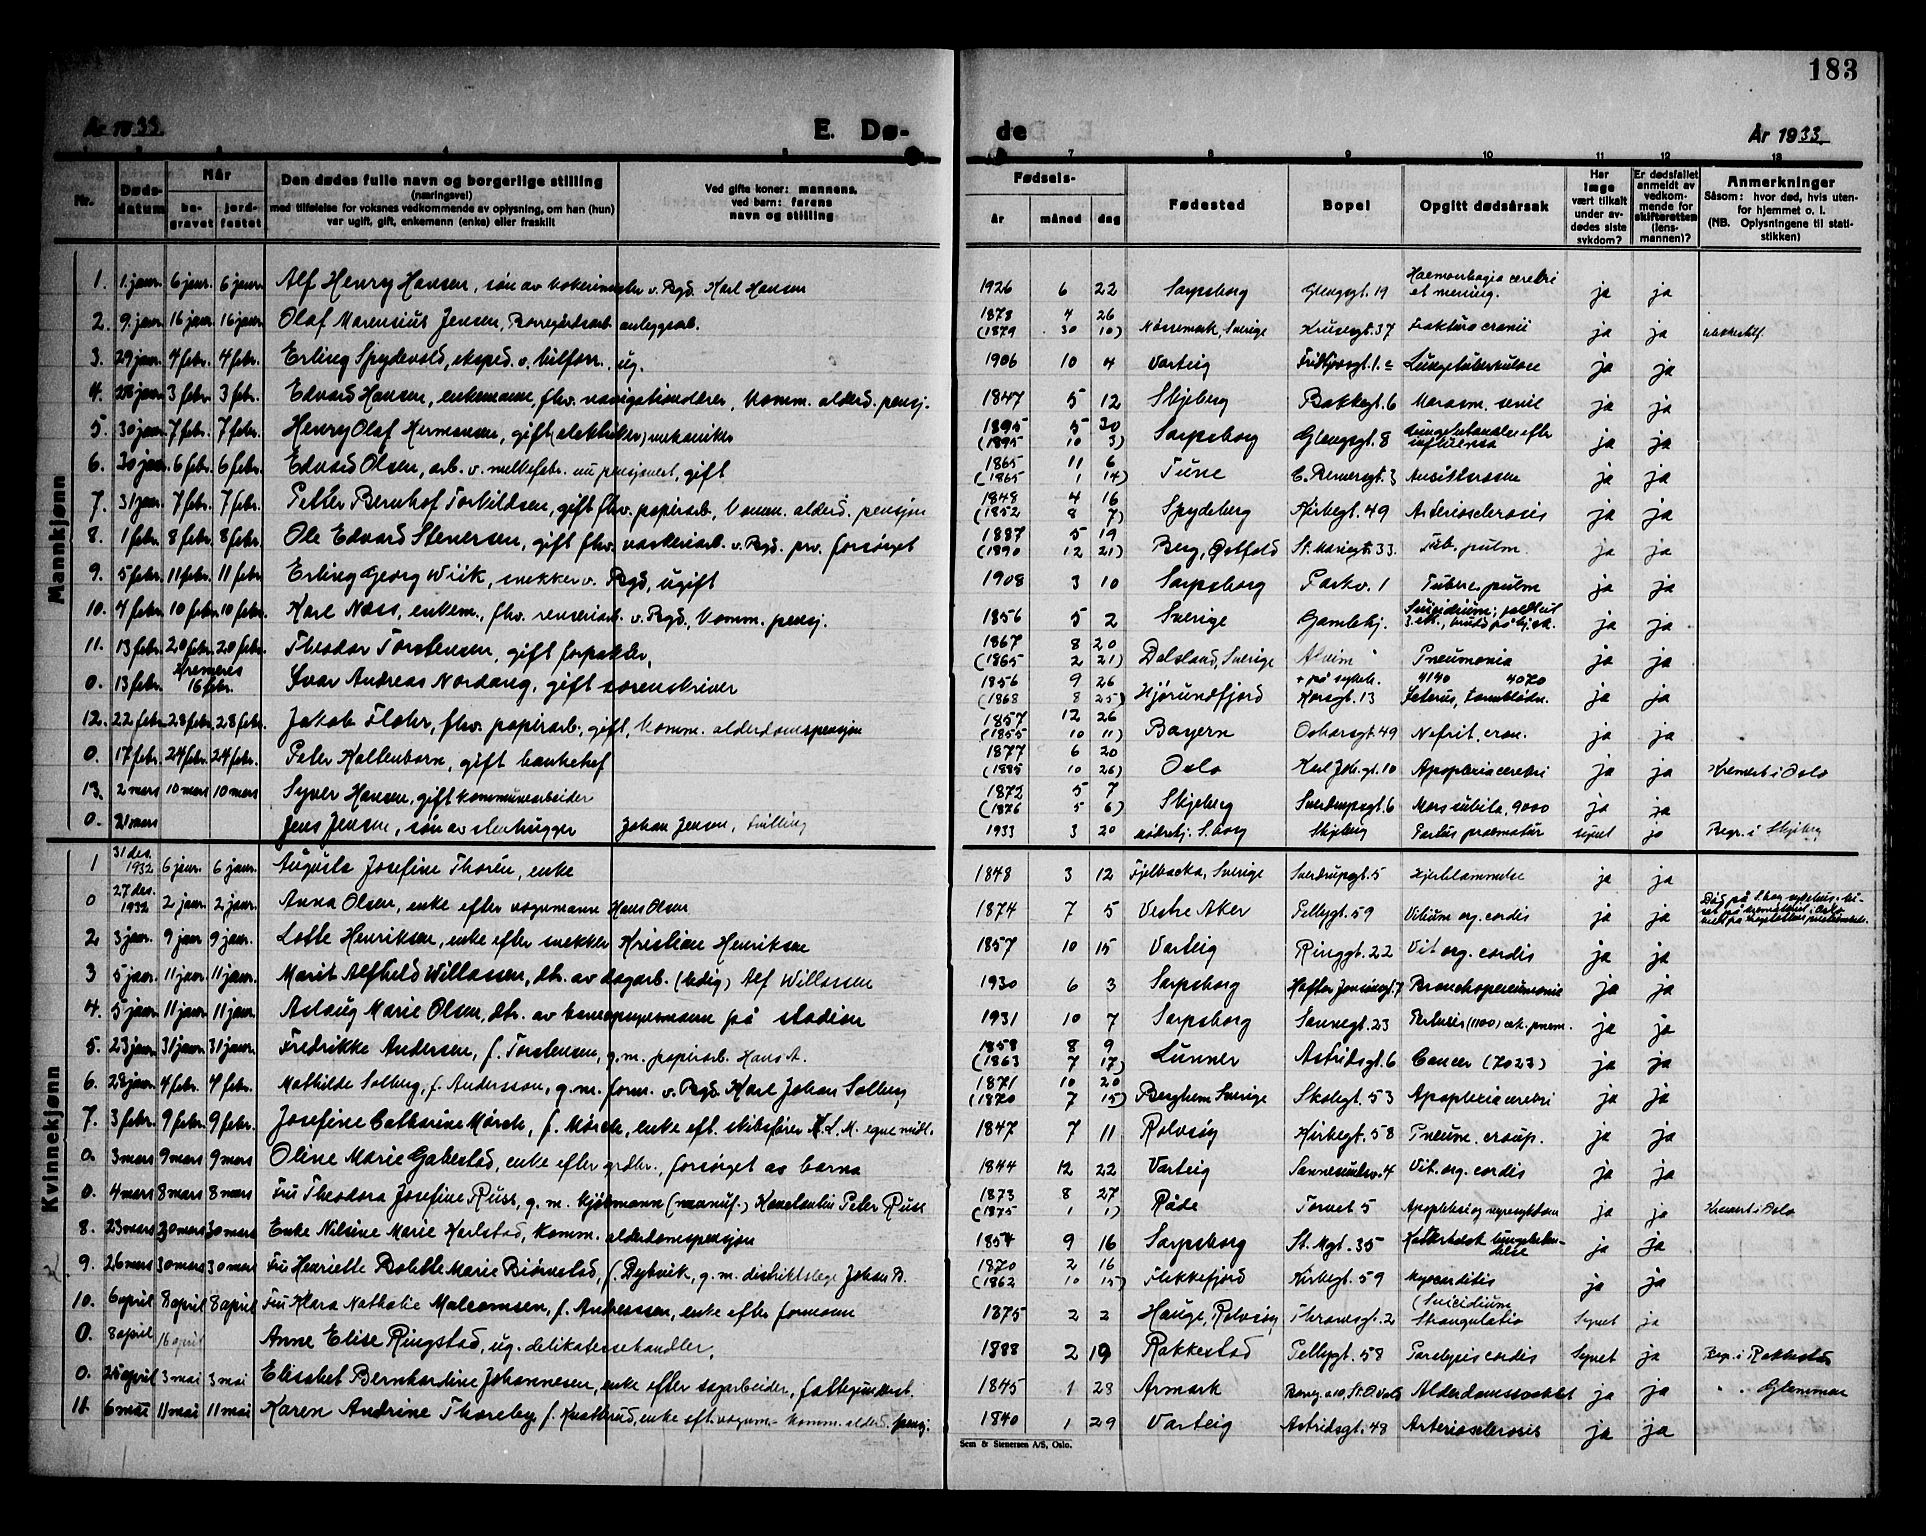 183
År 1933.
E. Dø-
de
År 1933.
7 8 9 10 11 12 13
Nr.
Døds-
datum
Når
be-
gravet
jord-
festet
Den dødes fulle navn og borgerlige stilling
(næringsvei)
med tilføielse for voksnes vedkommende av oplysning, om han (hun)
var ugift, gift, enkemann (enke) eller fraskilt
Ved gifte koner: mannens,
ved barn: farens
navn og stilling
Fødsels-
år måned dag
Fødested
Bopel
Opgitt dødsårsak
Har
læge
vært tilkalt
under av-
dødes siste
sykdom?
Er dødsfallet
anmeldt av
vedkom-
mende for
skifteretten
(lens-
mannen)?
Anmerkninger
Såsom: hvor død, hvis uten-
for hjemmet o. l.
(NB. Oplysningene til stati-
stikken)
Mannkjønn
1. 1 janr. 6 janr. 6 janr. Alf Henry Hansen, søn av v. Bgd. Karl Hansen 1926 6 22 Sarpsborg Glengsgt. 19 Haemorrhagia cerebri et mening. ja ja
2. 9 janr. 16 janr. 16 janr. Olaf Marensius Jensen, Borregårdsarb. anleggsarb. 1873 4 26 (1879 30 10) Nössemark, Sverige Krusesgt. 37 Fraktura cranii ja ja
3. 29 janr. 4 febr. 4 febr. Erling Spydevold, eksped. v. bilforr., ug. 1906 10 4 Varteig Lungetuberkulose ja ja
4. 28 janr. 3 febr. 3 febr. Edvard Hansen, enkemann, fhv. navigationslærer, komm. alderd. pensj. 1847 5 12 Skjeberg Bakkegt. 6 Marasm. senil ja ja
5. 30 janr. 7 febr. 7 febr. Henry Olaf Hermansen, gift (elektriker) mekaniker 1895 5 30 (1895 10 3) Sarpsborg Glengsgt. 8 efter influensa ja ja
6. 30 janr. 6 febr. 6 febr. Edvard Olsen, arb. v. melkefabr. nu pensjonert, gift 1865 11 6 (1865 1 14) Tune ja ja
7. 31 janr. 7 febr. 7 febr. Petter Bernhof Torkildsen, gift fhv. papirarb., komm. alderd. pensjon 1848 4 16 (1852 8 7) Spydeberg Kirkegt. 49 Arteriosclerosis ja ja
8. 1 febr. 8 febr. 8 febr. Ole Edvard Stenersen, gift fhv. vaskeriarb. v. Bgd. prv. forsørget 1887 5 19 (1890 12 21) Berg, Østfold St. Mariegt. 33. Tub. pulm. ja ja
9. 5 febr. 11 febr. 11 febr. Erling Georg Wiik, snekker v. Bgd, ugift 1908 3 10 Sarpsborg Parkv. 1 Tuberc. pulm ja ja
10. 4 febr. 10 febr. 10 febr. Karl Næss, enkem., fhv. renseriarb. v. Bgd., komm. pensj. 1856 5 2 Sverige Gamlehj. Suicidium; ja ja
11. 13 febr. 20 febr. 20 febr. Theodor Torstensen, gift forpakter, 1867 8 20 (1865 2 21) Dalsland, Sverige Alvim Pneumonia ja ja
0. 13 febr. Kremeres 16 febr. Ivar Andreas Nordang, gift sorenskriver 1856 9 26 (1868 8 25) Hjørundfjord + på sykeh. Korsgt. 13 4140 4070 Icterus, ja ja
12. 22 febr. 28 febr. 28 febr. Jakob Flohr, fhv. papirarb., gift, komm. alderdomspensjon 1857 12 26 (1855 10 11) Bayern Oskarsgt. 49 Nefrit. cron. ja ja
0. 17 febr. 24 febr. 24 febr. Peter Kollenborn, gift banksjef 1877 6 20 (1885 10 26) Oslo Karl Joh. gt. 10 Apoplexia cerebri ja ja Kremert i Oslo
13. 2 mars 10 mars 10 mars Syver Hansen, gift kommunearbeider 1872 5 7 (1876 5 6) Skjeberg Sverdrupsgt. 6 Mors subita, 9000 ja ja
0. 21 mars Jens Jensen, søn av stenhugger Johan Jensen, tvilling 1933 3 20 S.borg Skjeberg Partus præmatur synet ja Begr. i Skjeberg
Kvinnekjønn
1 31 des. 1932 6 janr. 6 janr. Augusta Josefine Thorén, enke 1848 3 12 Fjelbacka, Sverige Sverdrupsgt. 5 Hjertelammelse ja ja
0 27 des. 1932 2 janr. 2 janr. Anna Olsen, enke efter vognmann Hans Olsen 1874 7 5 Vestre Aker Pellygt. 59 Vitium org. cordis ja ja
2. 3 janr. 9 janr. 9 janr. Lotte Henriksen, enke efter snekker Kristian Henriksen 1857 10 15 Varteig Ringgt. 22 Vit org. cordis ja ja
3 5 janr. 11 janr. 11 janr. Marit Alfhild Willassen, dtr. av dagarb. (ledig) Alf Willassen 1930 6 3 Sarpsborg Bronchopneumonie ja ja
4. 5 janr. 11 janr. 11 janr. Aslaug Marie Olsen, dtr. av på stadion 1931 10 7 Sarpsborg Sannegt. 23 Pertusis (1100) ja ja
5. 23 janr. 31 janr. 31 janr. Fredrikke Andersen, f. Torstensen, g.m. papirarb. Hans A. 1858 8 9 (1863 7 17) Lunner Astridsgt. 6 Cancer (7023) ja ja
6. 28 janr. 4 febr. 4 febr. Mathilde Solberg, f. Andersson, g.m. form. v. Bgd. Karl Johan Solberg 1871 10 20 (1870 7 15) Berghem Sverige Skolegt. 53 Apoplexia cerebri ja ja
7. 3 febr. 9 febr. 9 febr. Josefine Catharine Mørch, f. Mørch, enke eft. skibsfører K. L. M. egne midl. 1847 7 11 Rolvsøy Kirkegt. 58 Pneum. croup. ja ja
0. 3 mars 9 mars 9 mars Oline Marie Gabestad, enke efter grdbr., forsørget av barna 1844 12 22 Varteig Vit. org. cordis ja ja
0. 4 mars 8 mars 8 mars Fru Theodora Josefine Russ, g. m. kjøbmann (manuf.) Konstantin Peter Russ 1873 8 27 (1875 1 1) Råde Torvet 5 ja ja Kremert i Oslo
8. 23 mars 30 mars 30 mars Enke Nilsine Marie Karlstad, komm. alderdomspensjon 1854 9 16 Sarpsborg St. Mgt. 35 ja ja
9. 26 mars 30 mars 30 mars Fru Henriette Bolette Marie Biørnstad, f. Dybvik, g.m. distriktslege Johan B. 1870 2 16 (1862 10 15) Flekkefjord Kirkegt. 59 Myocarditis ja ja
10. 6 april 8 april 8 april Fru Klara Nathalie Malcomsen, f. Andreassen, enke efter formann 1875 2 2 Hauge, Rolvsøy Thranesgt. 2 (Suicidium Strangulatio Synet ja
0. 8 april 16 april Anne Elise Ringstad, ug. delikatessehandler, 1888 2 19 Rakkestad Pellygt. 58 Paralysis cordis Synet ja Begr. i Rakkestad
0. 25 april 3 mai 3 mai Elisabet Bernhardine Johannesen, enke efter sagarbeider, fattigunderst. 1845 1 28 Aremark Alderdomssvakhet ja ja " . Glemmen
11. 6 mai 11 mai 11 mai Karen Andrine Thoreby, f. Knatterud, enke eft. vognm. - komm. alderd. pensj. 1840 1 29 Varteig Astridsgt. 48 Arteriosclerosis ja ja
Sem & Stenersen A/S, Oslo.